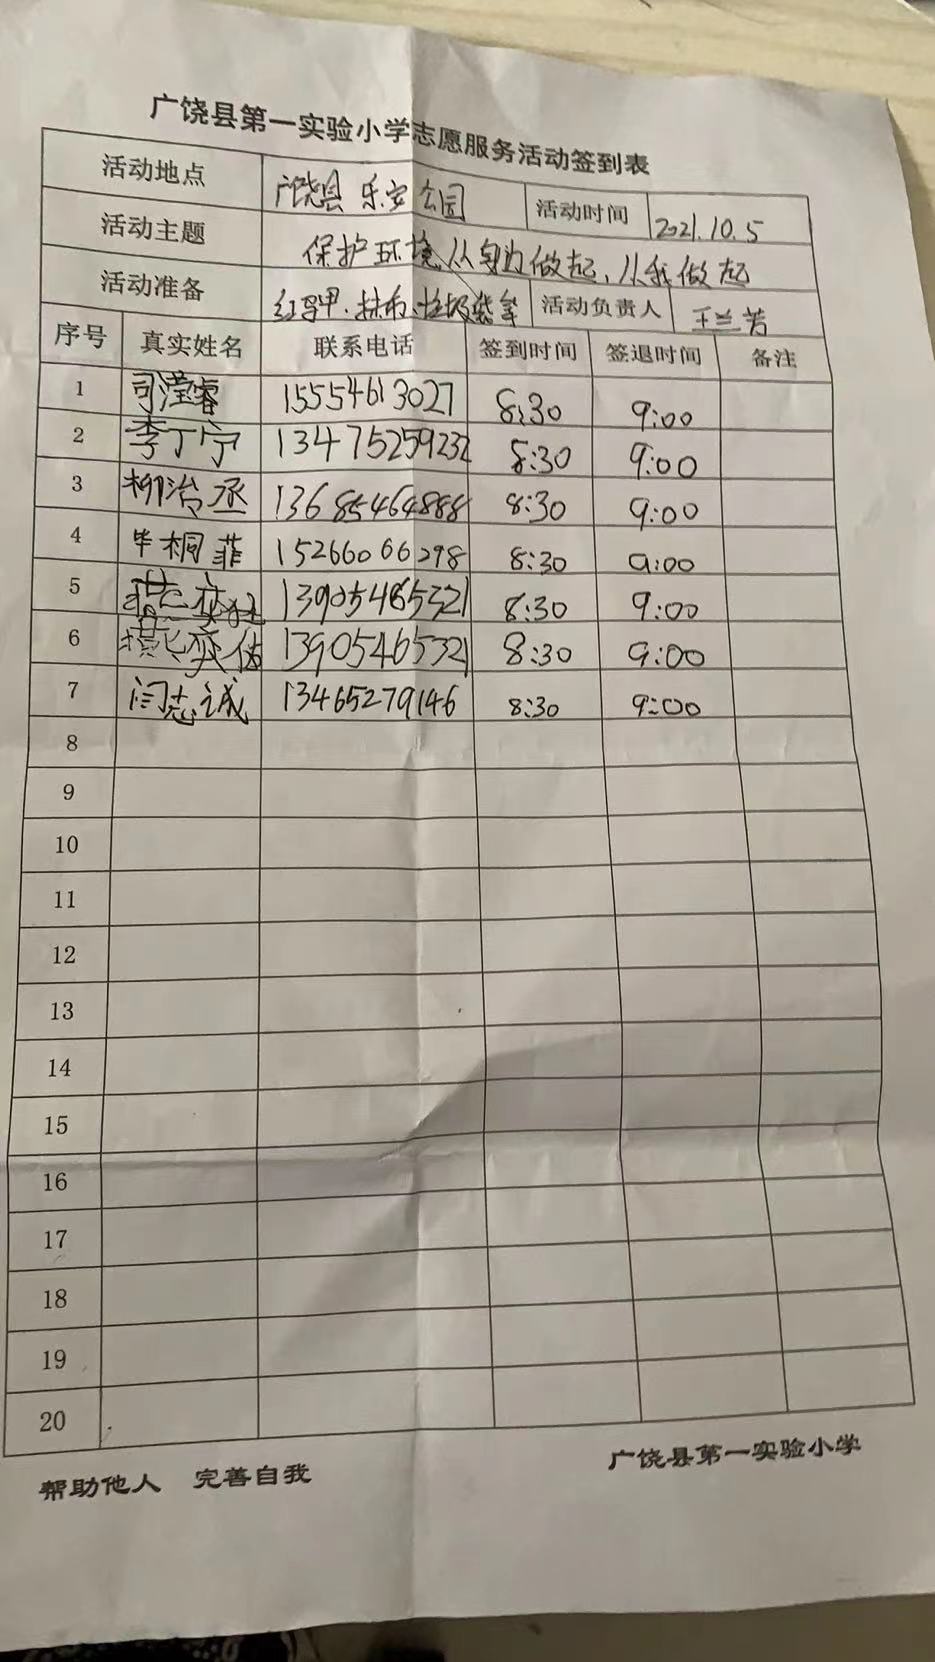 广饶县第一实验小学志愿服务活动签到表
活动地点 广饶县 乐安公园 活动时间 2021.10.5
活动主题 保护环境,从身边做起,从我做起
活动准备 红马甲、抹布、垃圾袋等 活动负责人 王兰芳
序号 真实姓名 联系电话 签到时间 签退时间 备注
1 司滢睿 15554613027 8:30 9:00
2 李丁宁 13475259232 8:30 9:00
3 柳治丞 13685464888 8:30 9:00
4 毕桐菲 15266066298 8:30 9:00
5 13905465321 8:30 9:00
6 13905465321 8:30 9:00
7 闫志诚 13465279146 8:30 9:00
8
9
10
11
12
13
14
15
16
17
18
19
20
帮助他人 完善自我 广饶县第一实验小学